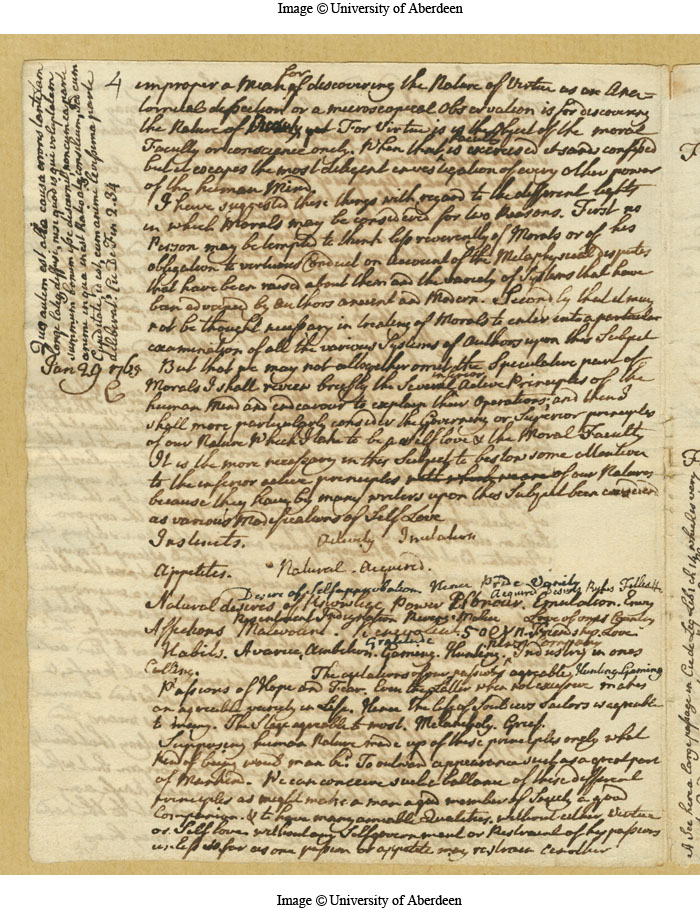 Image © University of Aberdeen
4 improper a mean for discovering the Nature of Virtue as an Ana=
tomical dissection or a microscopical Observation is for discovering
the Nature of Beauty For Virtue is the Object of the moral
Faculty or conscience onely. When that is exercised it stands confessed
but it escapes the most diligent investigation of every other power
of the human Mind.
I have suggested these things with regard to the different lights
in which Morals may be considered for two Reasons. First no
Person may be tempted to think less reverently of Morals or of his
obligation to virtuous Conduct on account of the Metaphysical disputes
that have been raised about them and the variety of Systems that have
been advanced by Authors ancient and Modern. Secondly that it may
not be thought necessary in treating of Morals to enter into a particular
examination of all the various Systems of Authors upon this Subject
Jan 29 1765 But that we may not altogether omit the Speculative part of
Morals I shall review briefly the Several inferior Active Principles of the
human Mind and endeavour to explain their Operations, and then I
shall more particularly consider the Governing or Superior principles
of our Nature Which I take to be Self love & the Moral Faculty
It is the more necessary in this Subject to bestow some attention
to the inferior active principles of our Nature,
because they have by many writers upon this Subject been considered
as various Modifications of Self Love
Instincts. Activity Imitation
Appetites. Natural. Acquired.
Desire of Self approbation Hence Pride Vanity
Natural desires of Knowlege Power Honour. Emulation. Envy
Resentment Indignation Revenge Malice Love of ones Country
Affections Malevolent. Friendship. Love
Gratitude
Habits. Avarice, Ambition. Gaming. Hunting. Trusting in ones
The agitations of our passions agreable, Hunting Gaming
Passions of Hope and Fear. Even the latter when not excessive makes
an agreeable variety in Life. Hence The life of Soldiers Sailors is agreable
to many. The Sea agreable to most. Melancholy. Grief.
Supposing human Nature made up of these principles onely what
kind of being would man be? To outward appearance such as a great part
of Mankind. We can conceive such a ballance of these different
principles as might make a man a good member of Society a good
Companion. & to have many amiable Qualities, without either Virtue
or Self love without any Self government or Restraint of his passions
unless so far as one passion or appetite may restrain another
Quae autem est alia causa erroris tanti tam
longe lateque diffusi, nisi quod is qui voluptatem
summum bonum esse decernit non cum ea parte
animi in qua inest Ratio atque consilium, sed cum
Cupiditate id est, cum animi levissima parte
deliberat. Cic De Fin 2. 34
Image © University of Aberdeen